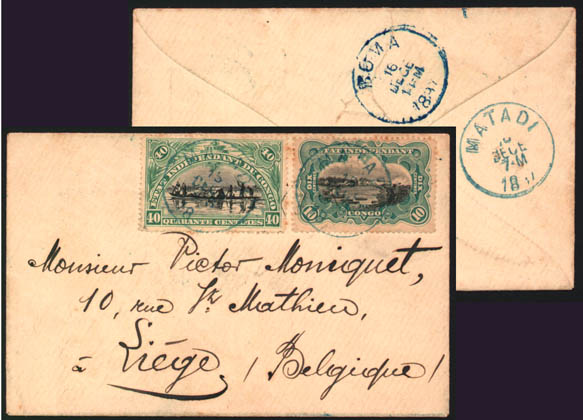 BOMA
16
DECE
1897
MATADI
DECE
7-M
189
40 40
ETAT INDEPENDANT DU CONGO
40 QUARANTE CENTIMES 40
ETAT INDEPENDANT
DIX DIX
10 CONGO 10
Monsieur Victor Monniquet,
10, rue St Mathieu,
à Liége, (Belgique)